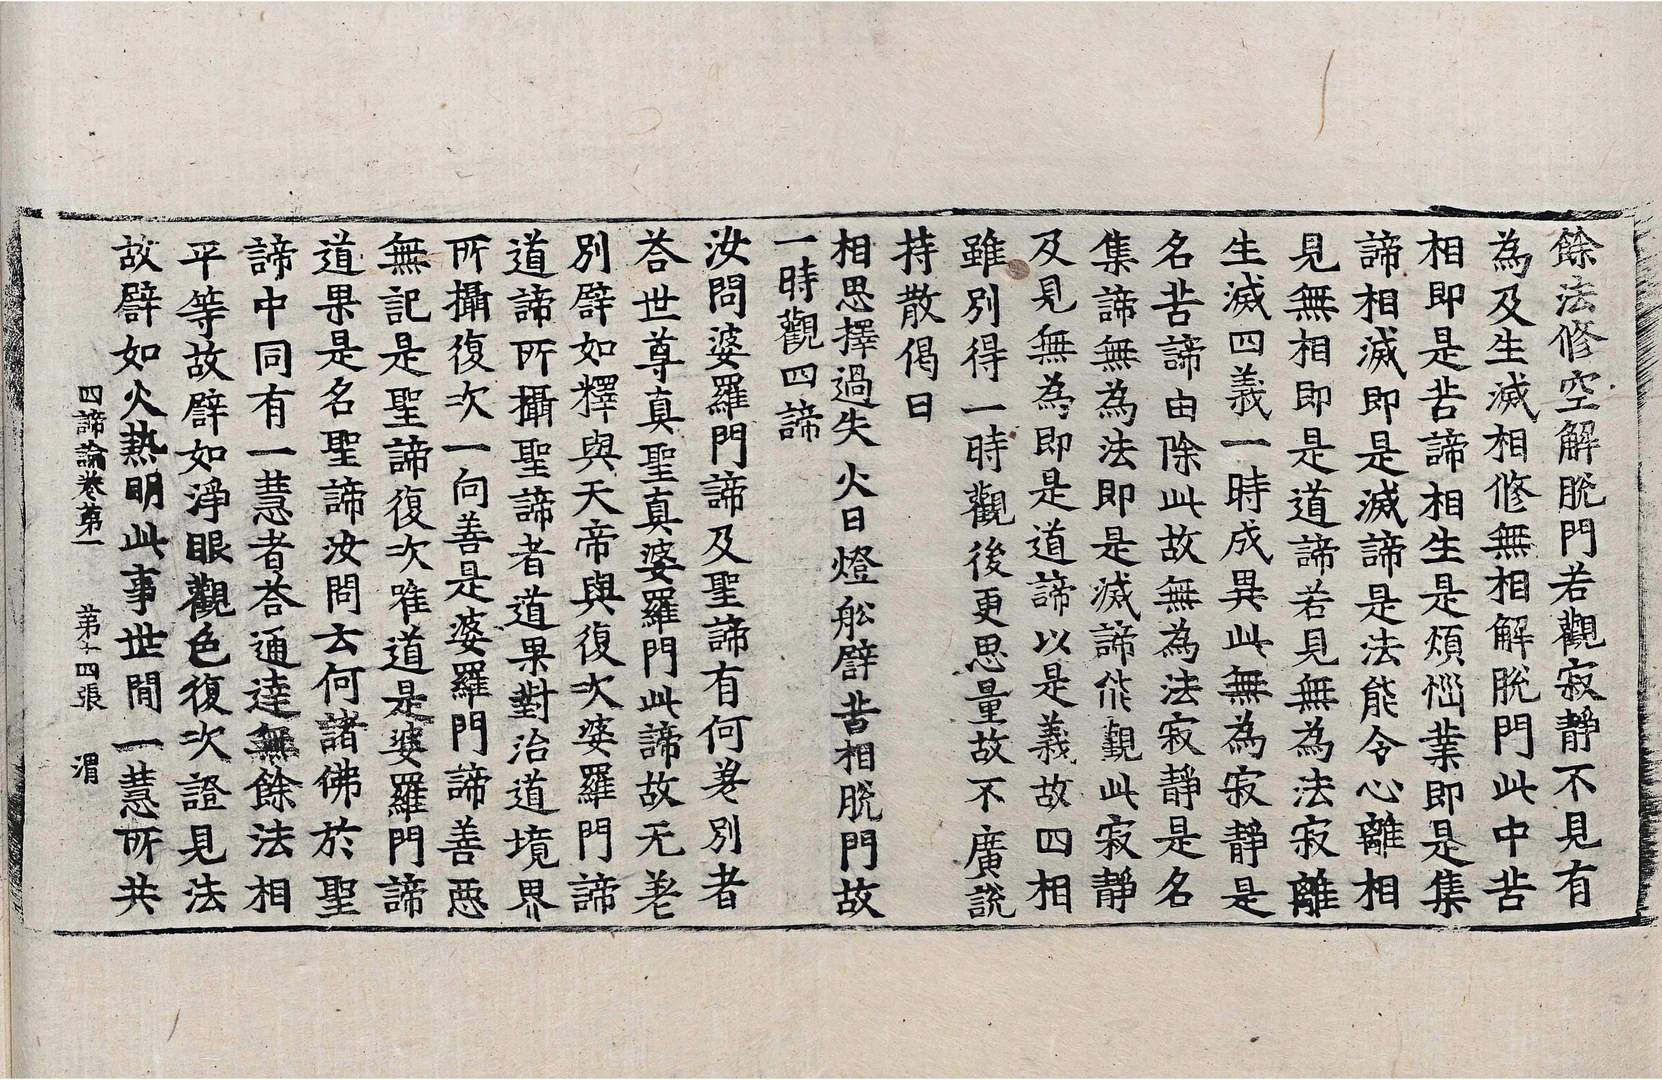 餘法修空解脫門若觀寂靜不見有
為及生滅相修無相解脫門此中苦
相即是苦諦相生是煩惱業即是集
諦相滅即是滅諦是法能令心離相
見無相即是道諦若見無為法寂離
生滅四義一時成異此無為寂靜是
名苦諦由除此故無為法寂靜是名
集諦無為法即是滅諦能觀此寂靜
及見無為即是道諦以是義故四相
雖別得一時觀後更思量故不廣說
持散偈曰
相思擇過失 火日燈舩譬昔相脫門故
一時觀四諦
汝問婆羅門諦及聖諦有何差別者
荅世尊真聖真婆羅門此諦故无差
別譬如釋與天帝與復次婆羅門諦
道諦所攝聖諦者道果對治道境界
所攝復次一向善是婆羅門諦善惡
無記是聖諦復次唯道是婆羅門諦
道果是名聖諦汝問云何諸佛於聖
諦中同有一慧者荅通達無餘法相
平等故譬如淨眼觀色復次證見法
故譬如火熱明此事世間一慧所共
四諦論卷第一 第十四張 渭